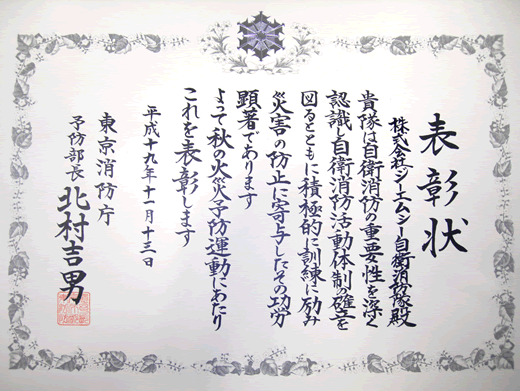 表彰状
株式会社ジーエムシー自衛消防隊殿
貴隊は自衛消防の重要性を深く
認識し自衛消防活動体制の確立を
図るとともに積極的に訓練に励み
災害の防止に寄与したその功労
顕著であります
よって秋の火災予防運動にあたり
これを表彰します
平成十九年十一月十三日
東京消防庁
予防部長 北村吉男